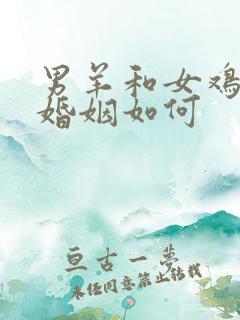 男羊和女鸡
婚姻如何
亘古一梦
未经同意禁止转载